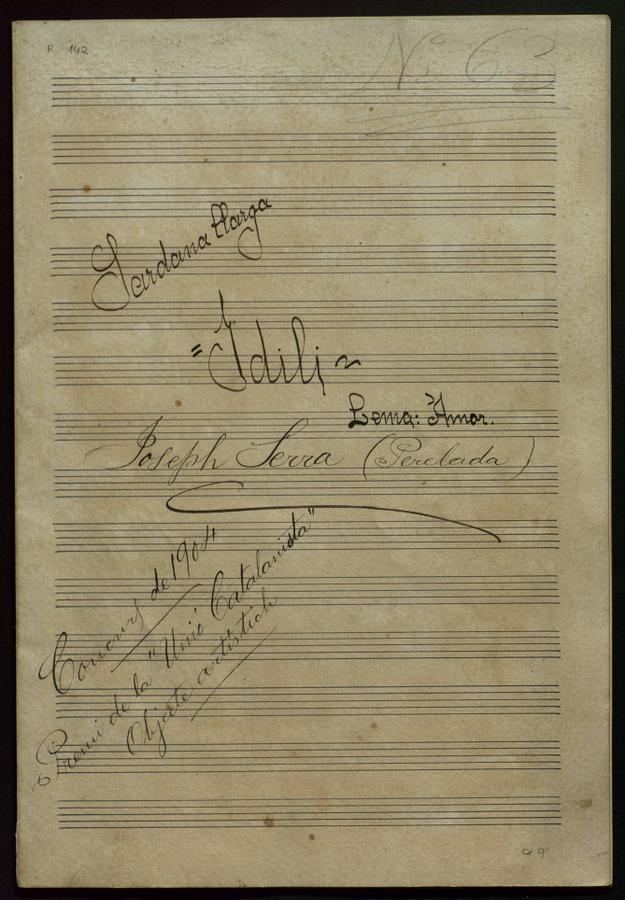 R. 142
Nº 63
Sardana llarga
"Idili"
Lema: Amor.
Joseph Serra (Perelada)
Concurs de 1904
Premi de la "Unió Catalanista"
Objecte artístich